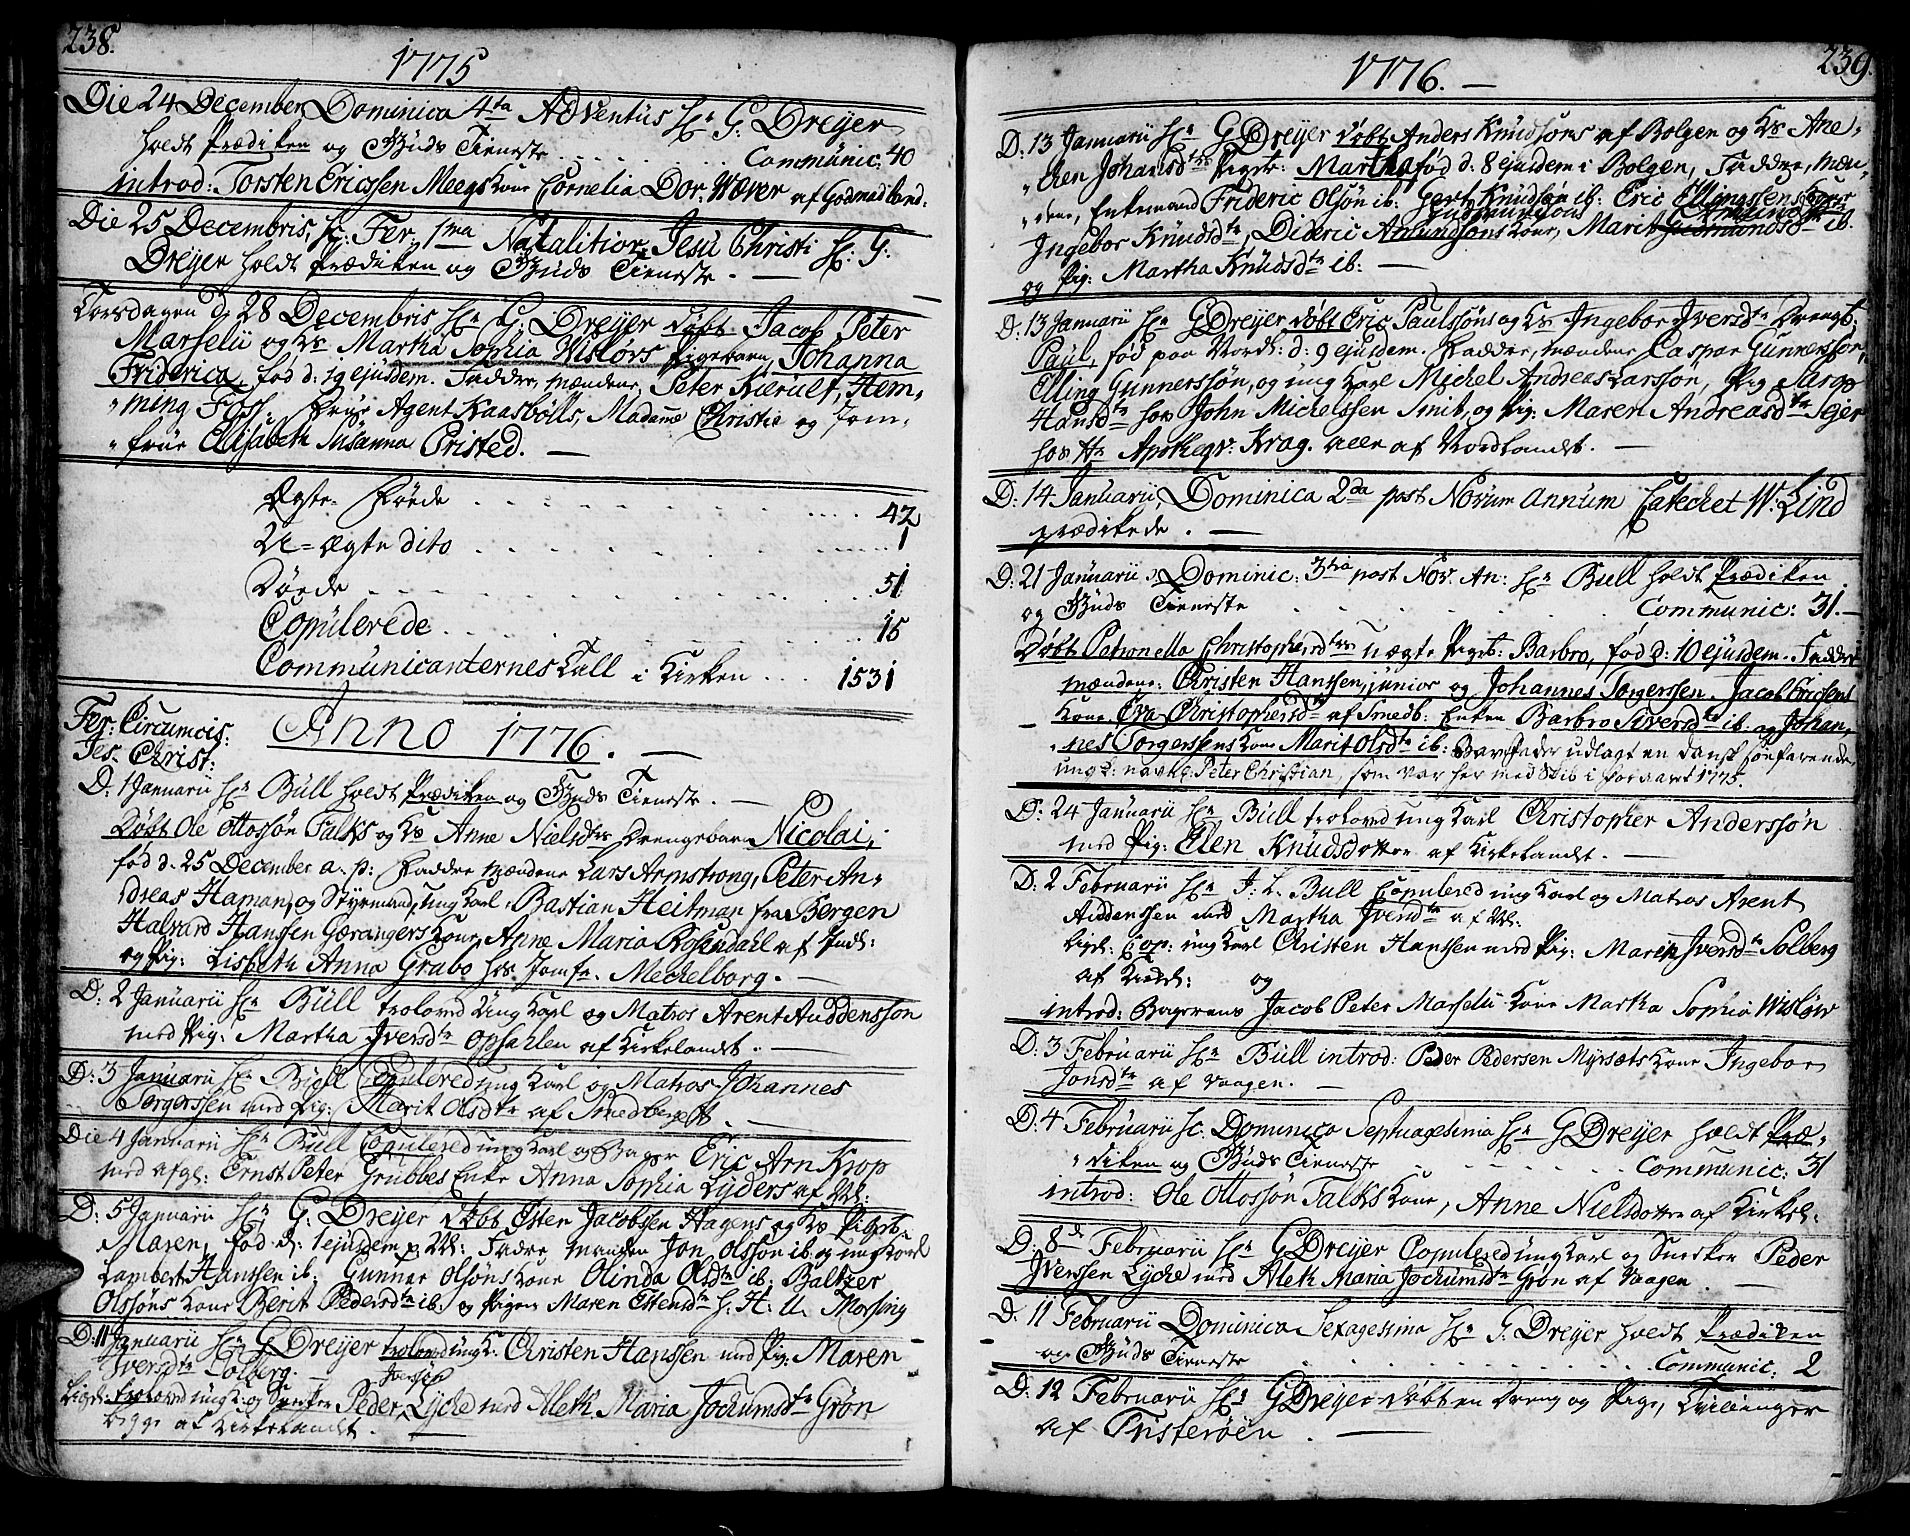 238.
1775
Die 24 December, Dominica 4ta Adventus Hr: G: Dreÿer
holdt Prædiken og Guds Tieneste . . . . . . . Communic: 40
introd: Torsten Ericssen Meegs Kone Cornelia Dor: Wæver af Godmadland.
Die 25 Decembris, sc: Fer. 1ma Natalitior. Jesu Christi Hr: G:
Dreÿer holdt Prædiken og Guds Tieneste. —
Torsdagen d. 28 Decembris Hr: G: Dreÿer døbt Jacob Peter
Marselii og Hs Martha Sophia Wisløvs Pigebarn, Johanna
Friderica, fød d: 19 ejusdem. Faddre, mændene, Peter Kierulf, Hem-
"ming Foss. Frue Agent Kaasbølls, Madame Christie og Jom-
"frue Elisabeth Susanna Pristed. —
Ægte-Fødde . . . . . . 42
U=Ægte dito . . . . . . 1
Døede . . . . . . 51
Copulerede . . . . . . 15
Communicanternes Tall i Kirken . . . 1531
Fer: Circumcis:
Jes. Christ:
Anno 1776. —
D: 1 Januarii Hr: Bull holdt Prædiken og Guds Tieneste. —
Døbt Ole Ottossøn Falks og Hs Anne Nielsdtrs Drengebarn Nicolai,
fød d. 25 December a. p: Faddre mændene Lars Armstrong, Peter An-
dreas Haman, og Styrmand, ung Karl Bastian Heitman fra Bergen
Halvard Hanssen Gærangers Kone, Anne Maria Rosendahl af Indl:
og Pig: Lisbeth Anna Grabo hos Jomfr. Mechelborg. —
D: 2 Januarii Hr: Bull trolovede Ung Karl og Matros Arent Auddenssøn
med Pig: Martha Iversdtr Opsahlen af Kirkelandet. —
D: 3 Januarii Hr: Bull Copulered ung Karl og Matros Johannes
Torgerssen med Pig: Marit Olsdtr af Smedberget. —
Die 4 Januarii Hr: Bull Copulered ung Karl og Bager Eric Arn Krop
med afgl: Ernst Peter Grubbes Enke Anna Sophia Lÿders af Ndl:
D: 5 Januarii Hr: G: Dreÿer døbt Østen Jacobsen Hagens og Hs Pigeb:
Maren, fød d: 1 ejusdem p. Ndl: Fadre, manden Jon Olssøn ib. og ung Karl
Lambert Hanssen ib: Gunnar Olsøns Kone Olinda Olsdtr ib: Baltzer
Olssøns Kone Berit Pedersdtr ib. og Pigen Maren Estensdtr h. H: U. Morsing
D: 11 Januarii Hr: G Dreÿer trolovede ung K: Christen Hanssen med Pig: Maren
Iversdtr Solberg. —
Iversøn
Ligel: trolovede ung K. og Snecker Peder Lÿche med Aleth Maria Jochumsdtr Grøn
begge af Kirkelandet. —
239.
1776. —
D: 13 Januarii Hr: G Dreÿer døbt Anders Knudsøns af Bolgen og Hs Ane-
"then Johansdtrs Pigeb: Martha fød d. 8 ejusdem i Bolgen, Faddre, mæn-
"dene, Enkemand Frideric Olsøn ib: Gert Knudsøn ib: Eric Ellingssens Kone
Ingebor Knudsdtr, Dideric Amundsøns Kone, Marit Gudmundsdtr ib.
og Pig: Martha Knudsdtr ib: —
D: 13 Januarii Hr: G Dreÿer døbt Eric Paulssøns og Hs Ingebor Iversdtr Drengb:
Paul, fød paa Nordl: d: 9 ejusdem. Faddre, mændene Caspar Gunnerssøn,
Elling Gunnerssøn, og ung Karl Michel Andreas Larssøn, Pig
Hansdtr hos John Michelssen Smit, og Pig: Maren Andreasdtr Sejer
hos Hr Apotheqr: Krag. alle af Nordlandet. —
D: 14 Januarii, Dominica 2da post Novum Annum Catechet W: Lind
prædikede. —
D: 21 Januarii, Dominic: 3tia post Nov. An: Hr: Bull holdt Prædiken
og Guds Tieneste . . . . . Communic: 31. —
Døbt Petronella Christophersdtrs uægte Pigeb: Barbro, fød d: 10 ejusdem. Faddre
mændene: Christen Hanssen, junior og Johannes Torgerssen, Jacob Ericsens
Kone Eva Christophersdtr af Smedb: Enken Barbro Siversdtr ib. og Johan-
"nes Torgerssens Kone Marit Olsdtr ib: Barnefader udlagt en dansk søefarende
ung k: navnl. Peter Christian, som var her med Skib i Foraaret 1775.
D: 24 Januarii Hr: Bull trolovede ung Karl Christopher Anderssøn
med Pig: Elen Knudsdotter af Kirkelandet. —
D: 2 Februarii Hr: J. L. Bull Copulered ung Karl og Matros Arent
Auddenssen med Martha Iversdtr af Ndl:
Ligel: Cop: ung Karl Christen Hanssen med Pig: Maren Iversdtr Solberg
af Kirkel: og
introd: Bagerens Jacob Peter Marselii Kone Martha Sophia Wisløw
D: 3 Februarii Hr: Bull introd: Peder Pedersen Myrsæts Kone Ingebor
Jonsdtr af Vaagen. —
D: 4 Februarii sc. Dominica Septuagesima Hr: G Dreÿer holdt Præ-
"diken og Guds Tieneste . . . . . . Communic: 31
introd: Ole Ottossøn Falks Kone, Anne Nielsdotter af Kirkel:
D: 8de Februarii Hr: G Dreÿer Copulered ung Karl og Snecker Peder
Iverssen Lÿche med Aleth Maria Jochumsdtr Grøn af Vaagen. —
D: 11 Februarii Dominica Sexagesima Hr: G: Dreÿer holdt Prædiken
og Guds Tieneste . . . . . . Communic: 2
D: 12 Februarii Hr: G Dreÿer døbt en Dreng og Pige, Tvillinger
af Pristerøen. —